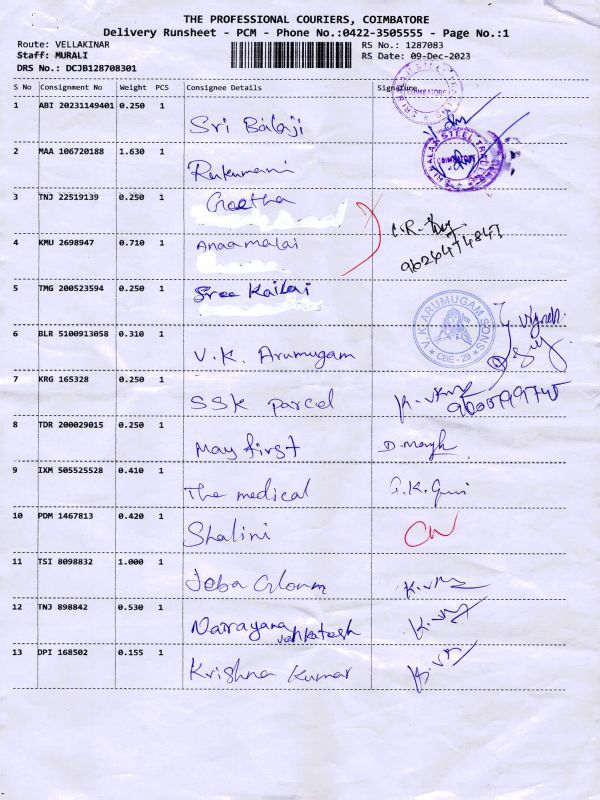 THE PROFESSIONAL COURIERS, COIMBATORE
Delivery Runsheet - PCM - Phone No.:0422-3505555 - Page No.:1
Route: VELLAKINAR RS No.: 1287083
Staff: MURALI RS Date: 09-Dec-2023
DRS No.: DCJB128708301
S No Consignment No Weight PCS Consignee Details Signature
1 ABI 20231149401 0.250 1 Sri Balaji
SRI BALAJI STEEL TRADERS
COIMBATORE
2 MAA 106720188 1.630 1 Rukumani
SRI BALAJI STEEL TRADERS
COIMBATORE
3 TNJ 22519139 0.250 1 Geetha
4 KMU 2698947 0.710 1 Anaamalai
9626474847
5 TMG 200523594 0.250 1 Sree Kailai
6 BLR 5100913058 0.310 1 V.K. Arumugam
V.K. ARUMUGAM SONS
CBE - 29
7 KRG 165328 0.250 1 SSK parcel
8 TDR 200029015 0.250 1 May first
9 IXM 505525528 0.410 1 The medical
10 PDM 1467813 0.420 1 Shalini
11 TSI 8098832 1.000 1 Jeba
12 TNJ 898842 0.530 1 Narayana
venkatesh
13 DPI 168502 0.155 1 Krishna Kumar